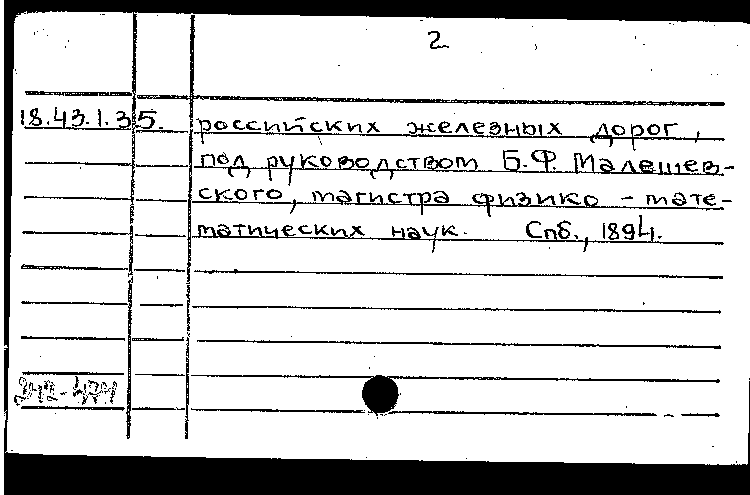 2
18.43.1.35. российских железных дорог,
под руководством Б.Ф. Малешев-
ского, магистра физико - мате-
матических наук. Спб., 1894.